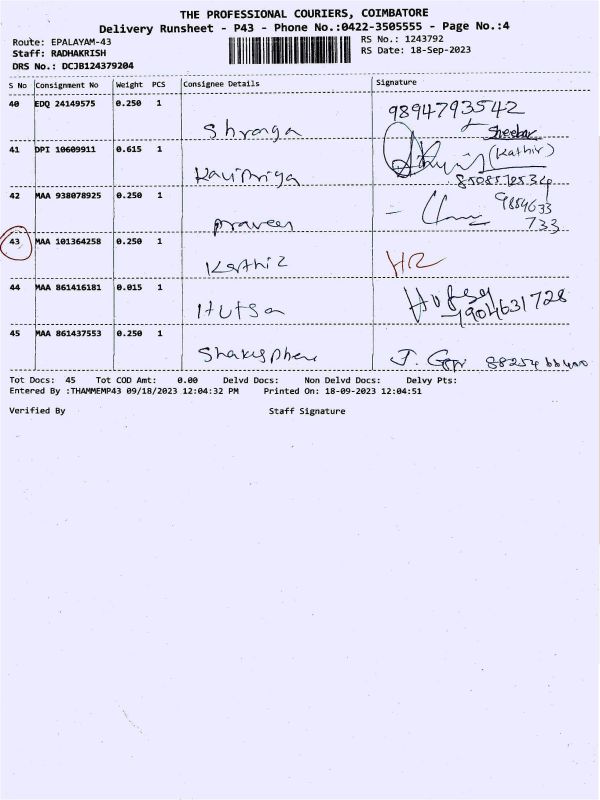 THE PROFESSIONAL COURIERS, COIMBATORE
Delivery Runsheet - P43 - Phone No.:0422-3505555 - Page No.:4
Route: EPALAYAM-43 RS No.: 1243792
Staff: RADHAKRISH RS Date: 18-Sep-2023
DRS No.: DCJB124379204
S No Consignment No Weight PCS Consignee Details Signature
40 EDQ 24149575 0.250 1 9894793542
Shraga
41 DPI 10609911 0.615 1 (Kathir)
Kavipriya
42 MAA 938078925 0.250 1
praveen 733
43 MAA 101364258 0.250 1 HR
Karthiz
44 MAA 861416181 0.015 1
Hutsa 7904631728
45 MAA 861437553 0.250 1
Shakesphere
Tot Docs: 45 Tot COD Amt: 0.00 Delvd Docs: Non Delvd Docs: Delvy Pts:
Entered By :THAMMEMP43 09/18/2023 12:04:32 PM Printed On: 18-09-2023 12:04:51
Verified By Staff Signature